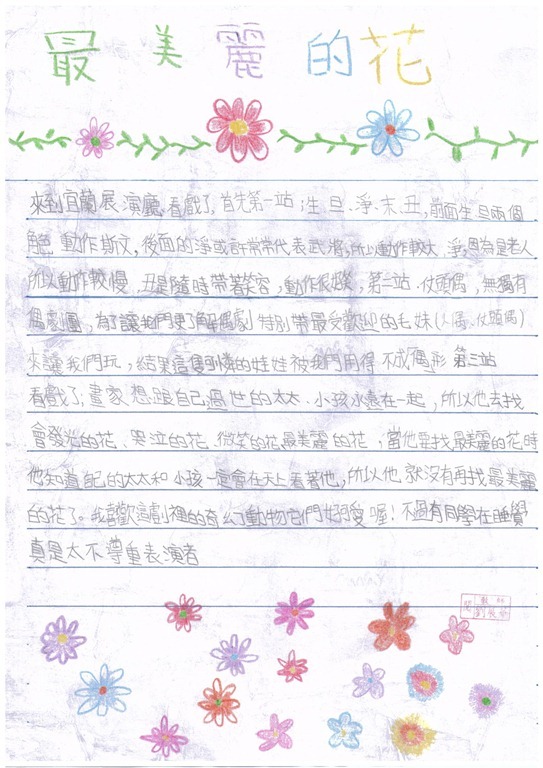 最美麗的花
來到宜蘭展演廳看戲了,首先第一站:生、旦、淨、末、丑,前面生、旦兩個
角色 動作斯文,後面的淨或許常常代表武將,所以動作較大,淨,因為是老人
所以動作較慢,丑是隨時帶著笑容,動作很,第二站、仗頭偶,無獨有
偶劇團,為了讓我們更了解偶劇特別帶最受歡迎的毛妹(人偶、仗頭偶)
來讓我們玩,結果這隻可憐的娃娃被我們用得不成偶形 第三站
看戲了;畫家想跟自己過世的太太、小孩永遠在一起,所以他去找
會發光的花、哭泣的花、微笑的花,最美麗的花,當他要找最美麗的花時
他知道自己的太太和小孩一定會在天上看著他,所以他就沒有再找最美麗
的花了。我喜歡這劇裡的奇幻動物它們好可愛喔!不過有同學在睡覺
真是太不尊重表演者